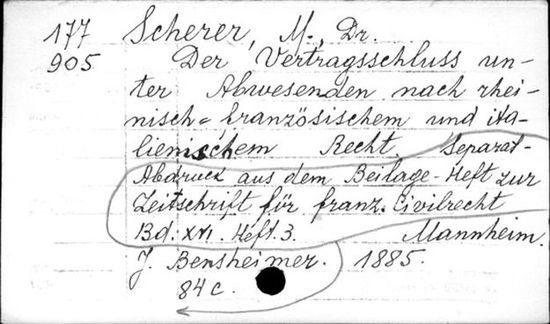 177 Scherer, M., Dr.
905 Der Vertragsschluss un-
ter Abwesenden nach rhei-
nisch = französischem und ita-
lienischem Recht. Separat-
Abdruck aus dem Beilage-Heft zur
Zeitschrift für franz. Civilrecht
Bd. XVI. Heft. 3. Mannheim.
J. Bensheimer. 1885.
84 c.